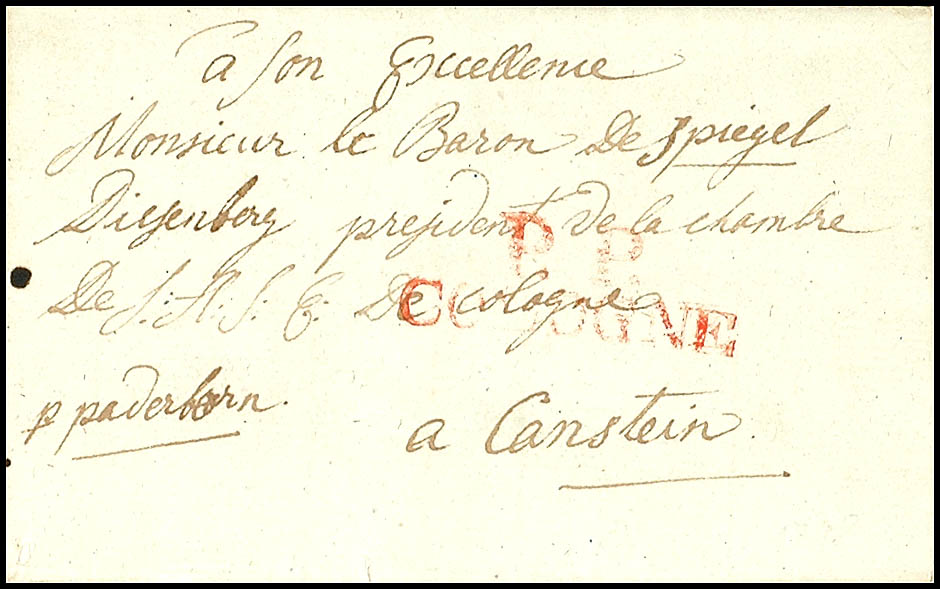 a son Excellence
Monsieur le Baron De Spiegel
Diesenberg president de la chambre
De S: A: S: E: De Cologne
P. P.
COLOGNE
p paderborn.
a Canstein.